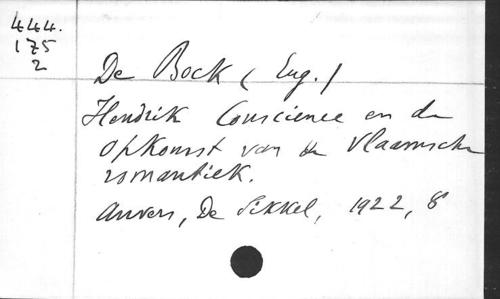 444.
175
2
De Bock (Eug.)
Hendrik Conscience en de
opkomst van de Vlaamsche
romantiek.
Anvers, De Sikkel, 1922, 8°